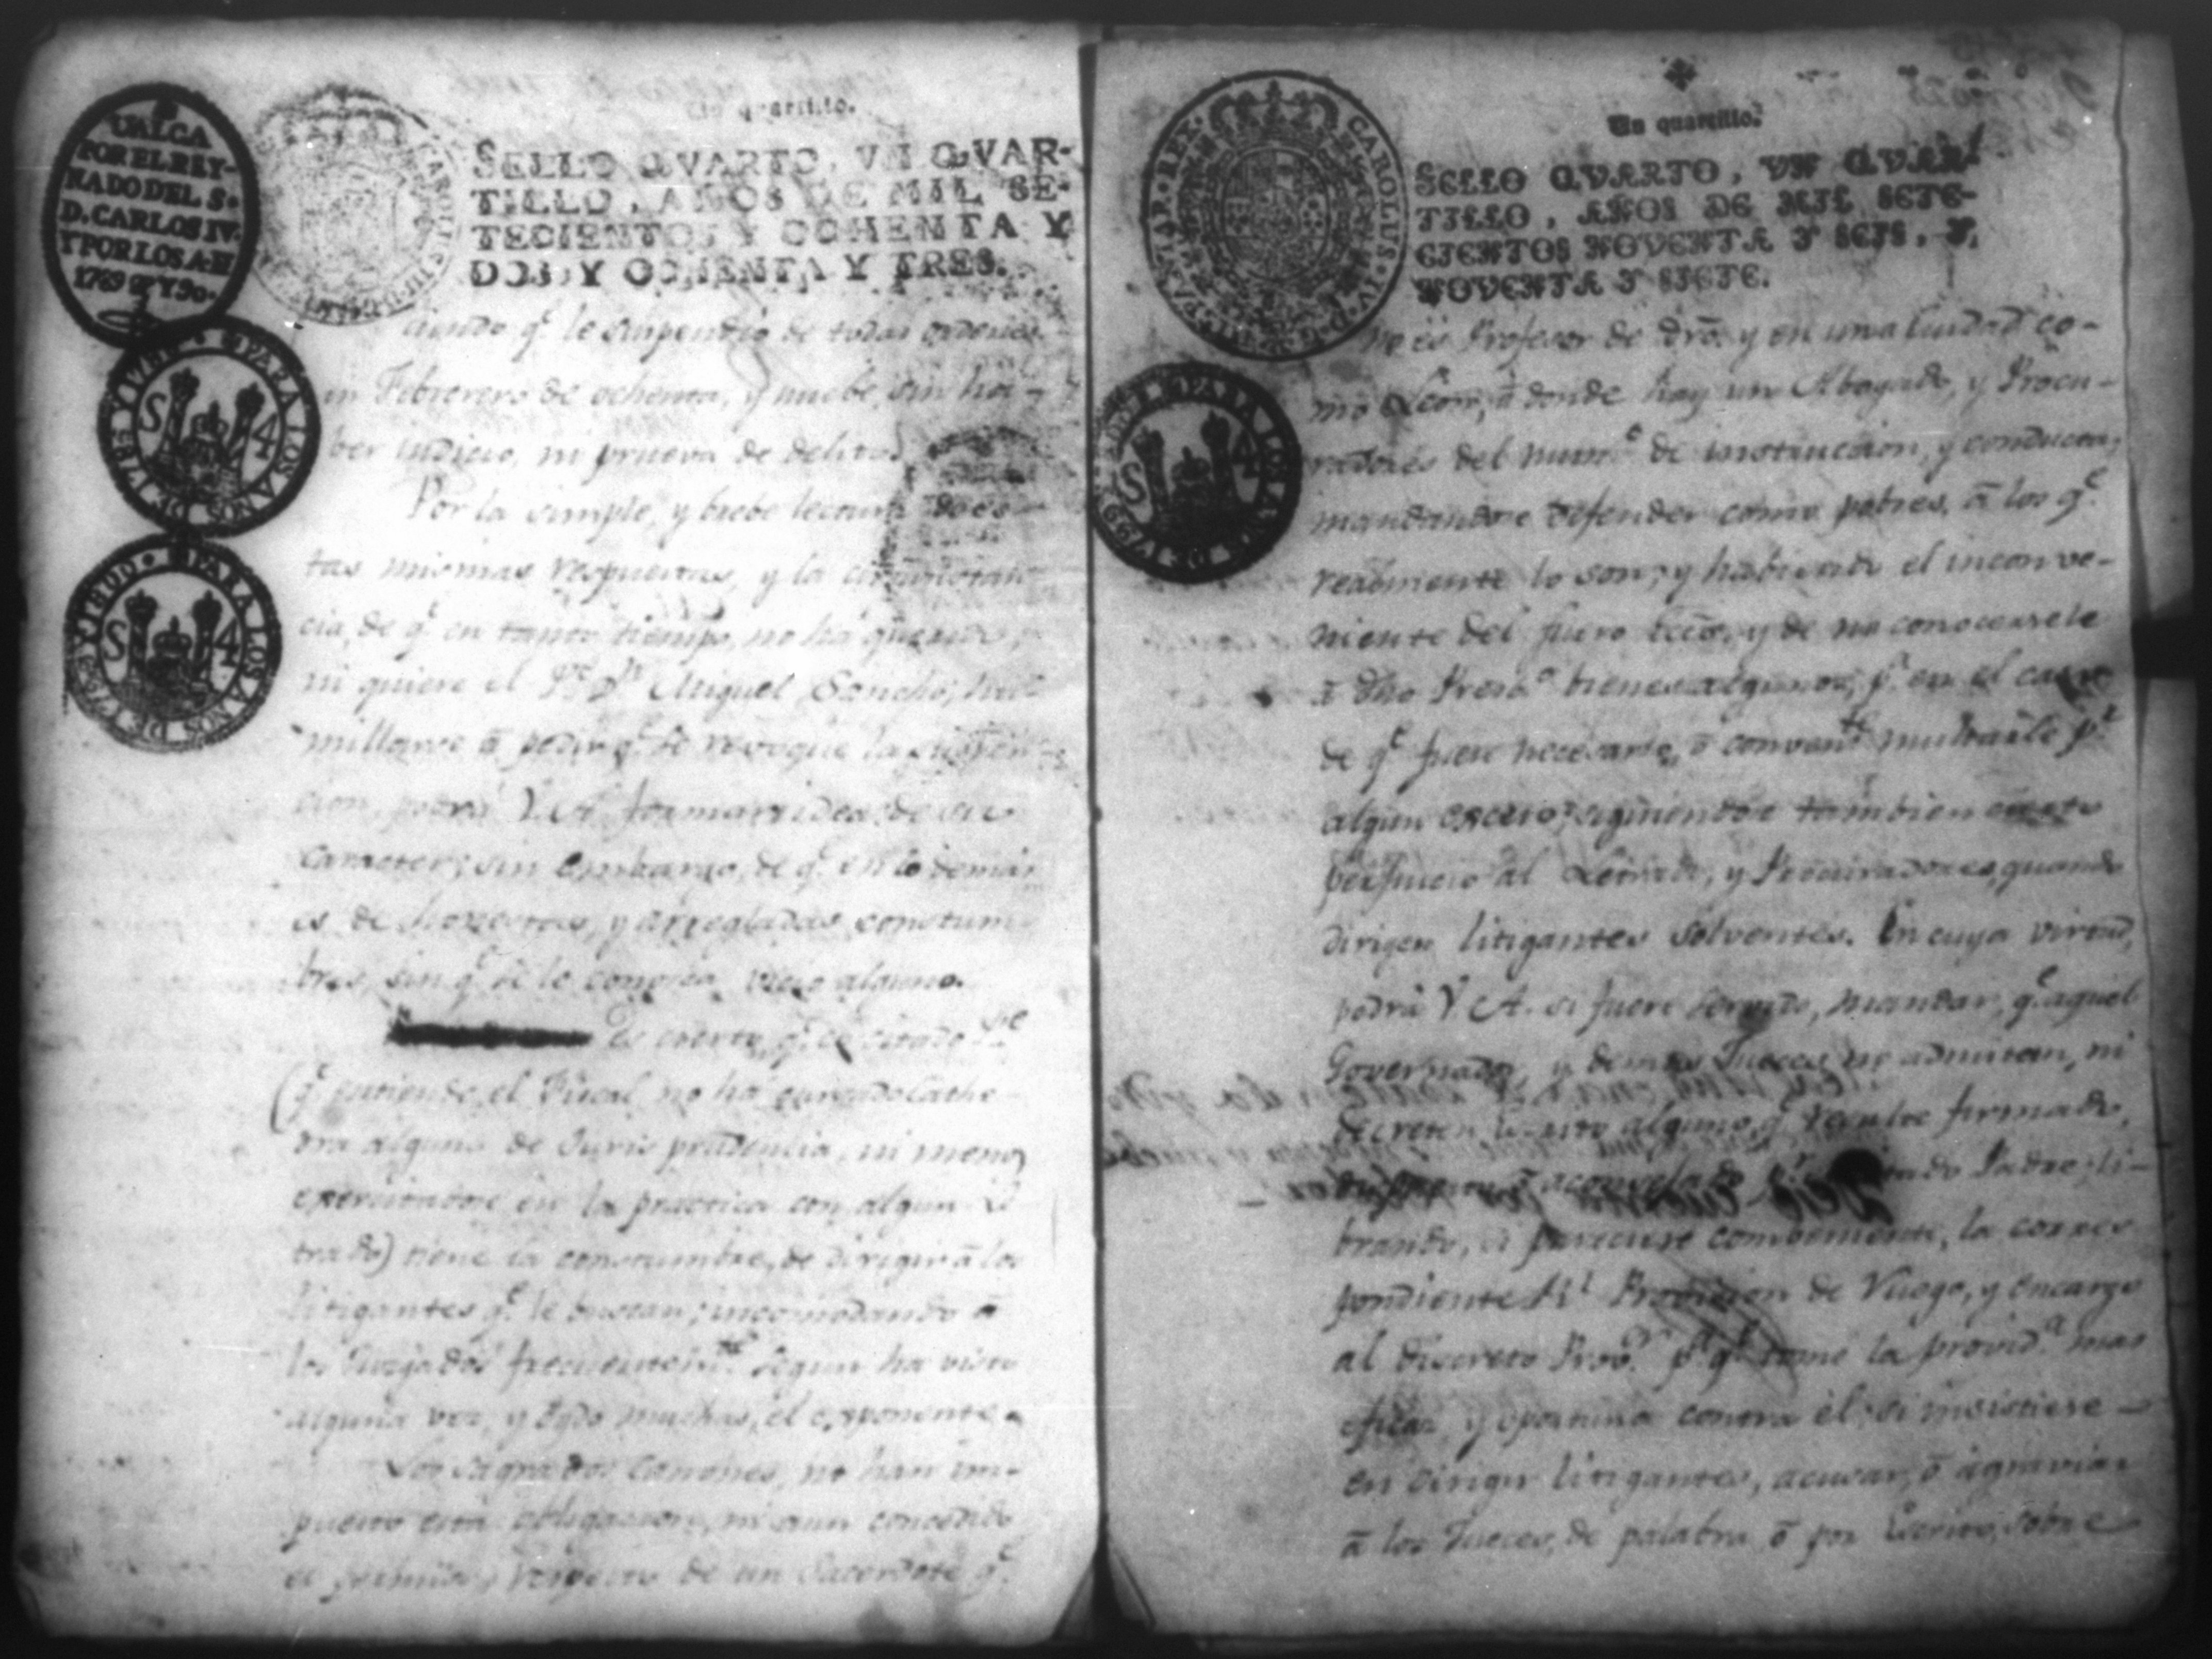 VALGA
POR EL REY-
NADO DEL S.
D. CARLOS IV.
Y POR LOS A. D
1789 Y 90.
Un quartillo.
SELLO QVARTO, VN QVAR-
TILLO, AÑOS DE MIL SE-
TECIENTOS Y OCHENTA Y
DOS, Y OCHENTA Y TRES.
PARA LOS AÑOS DE
S 4
PARA LOS AÑOS DE 1800
S 4
q.e le suspendio de todas ordenes
en Febrero de ochenta, y nuebe, sin ha-
ber indicio, ni prueva de delito
Por la simple, y brebe lectura de es-
tas mismas respuestas, y la circunstan-
cia, de q.e en tanto tiempo, no ha querido,
ni quiere el P.e D.n Miguel Sancho, hu-
millarse à pedir q.e se revoque la suspen-
cion, podrá V. A. formar idea de su
caracter; sin embargo, de q.e en lo demas
es de honestas, y arregladas constum-
bres, sin q.e se le conosca vicio alguno.
Es cierto, q.e el citado P.e
(q.e entiende el Fiscal no ha cursado Cathe-
dra alguna de Juris prudencia, ni menos
exercitadose en la practica con algun Le-
trado) tiene la constumbre, de dirigir à los
litigantes q.e le buscan; incomodando à
los Juzgados frecuentem.te segun ha visto
alguna vez, y oydo muchas, el exponente.
Los Sagrados Canones, no han im-
puesto esta obligacion, ni aun concedido
el permiso, respecto de un Sacerdote q.e
Un quartillo.
CAROLUS IV D. G. HISPANIAR. REX
SELLO QVARTO, VN QVAR-
TILLO, AÑOS DE MIL SETE-
CIENTOS NOVENTA Y SEIS, Y
NOVENTA Y SIETE.
PARA LOS AÑOS DE 1799
S 4
no es Profesor de dro. y en una Ciudad co-
mo Leon, à donde hay un Abogado, y Procu-
radores del num.o de instruccion, y conducta;
mandandose defender como pobres, à los q.e
realmente lo son; y habiendo el inconve-
niente del fuero ecco. y de no conocersele
à dho Presb.o bienes algunos, p.a en el caso
de q.e fuere necesario, ò conven.te multarle p.r
algun exceso; siguiendose tambien en esto
perjuicio al Letrado, y Procuradores, quando
dirigen litigantes solventes. En cuya virtud,
podrá V. A. si fuere servido, mandar, q.e aquel
Governador, y demas Jueces no admitan, ni
decreten Escrito alguno, q.e resulte firmado,
Padre; li-
brando, si pareciere combeniente, la corres-
pondiente R.l Provision de Ruego, y encargo
al discreto Prov.or p.a q.e tome la provid.a mas
eficaz, y oportuna contra él, si insistiere
en dirigir litigantes, acusar, ò agraviar
à los Jueces, de palabra ò por Escrito, sobre